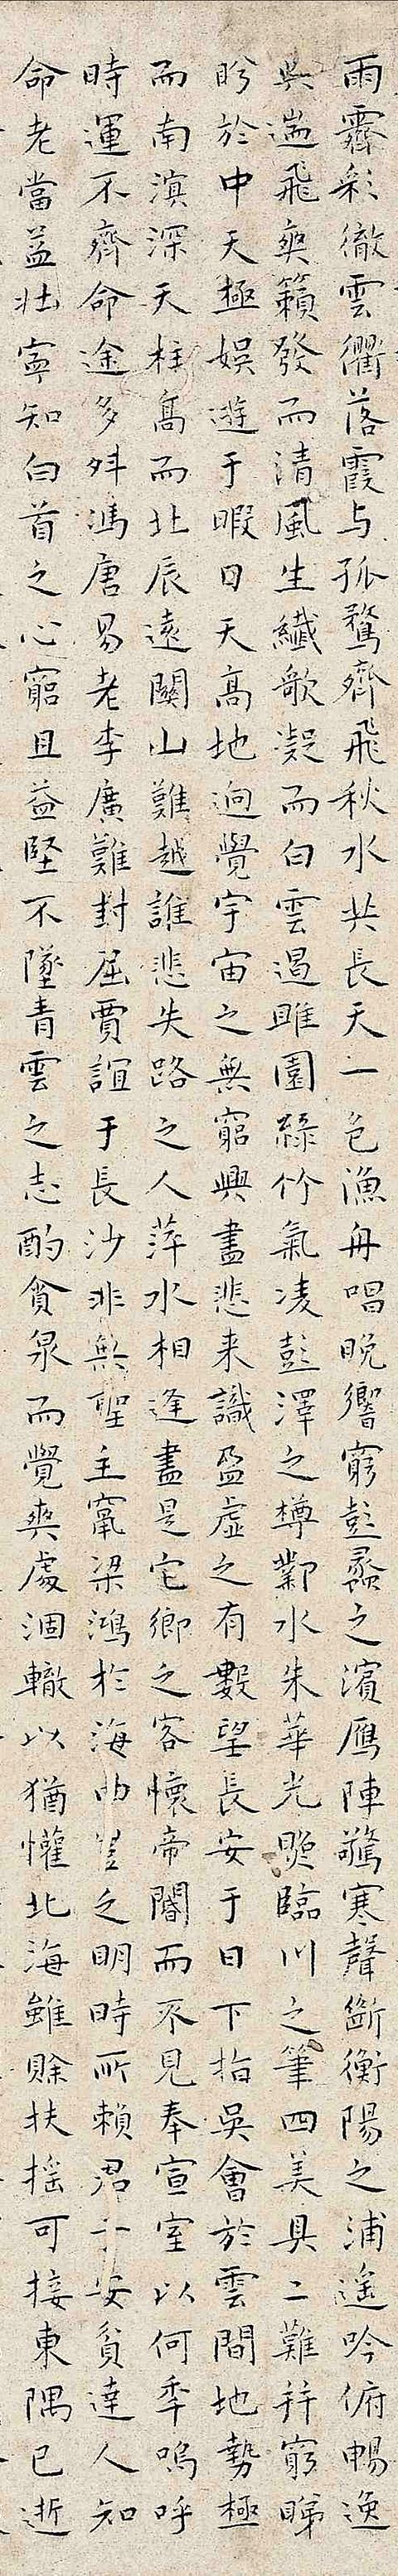 雨霽彩徹雲衢落霞与孤鶩齊飛秋水共長天一色漁舟唱晚響窮彭蠡之濱鴈陣驚寒聲斷衡陽之浦遥吟俯暢逸
興遄飛爽籟發而清風生纖歌凝而白雲遏睢園綠竹氣凌彭澤之樽鄴水朱華光照臨川之筆四美具二難并窮睇
眄於中天極娛遊于暇日天高地逈覺宇宙之無窮興盡悲来識盈虚之有數望長安于日下指吳會於雲間地勢極
而南溟深天柱高而北辰遠關山難越誰悲失路之人萍水相逢盡是它鄉之客懷帝閽而不見奉宣室以何季嗚呼
時運不齊命途多舛馮唐易老李廣難對屈賈誼于長沙非無聖主竄梁鴻於海曲豈乏明時所賴君子安貧達人知
命老當益壯寧知白首之心窮且益堅不墜青雲之志酌貪泉而覺爽處涸轍以猶懽北海雖賖扶摇可接東隅已逝